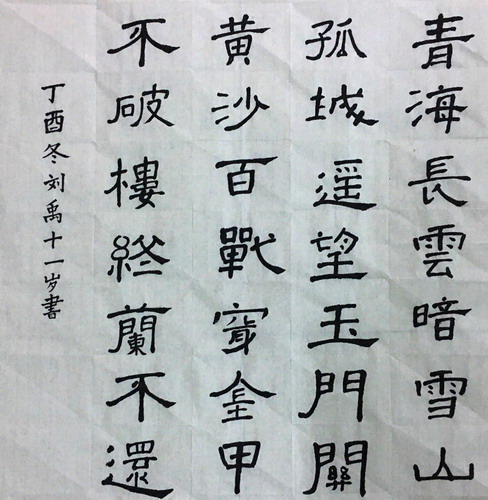 青海長雲暗雪山
孤城遥望玉門關
黄沙百戰穿金甲
不破樓終蘭不還
丁酉冬刘禹十一岁書